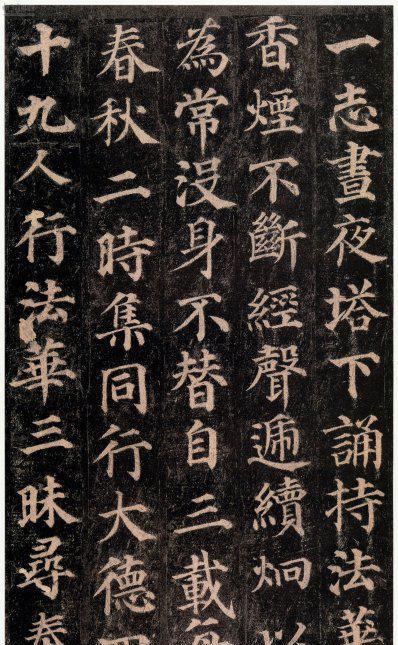 一志晝夜塔下誦持法華
香煙不斷經聲遞續炯以
為常没身不替自三載每
春秋二時集同行大德四
十九人行法華三昧尋奉